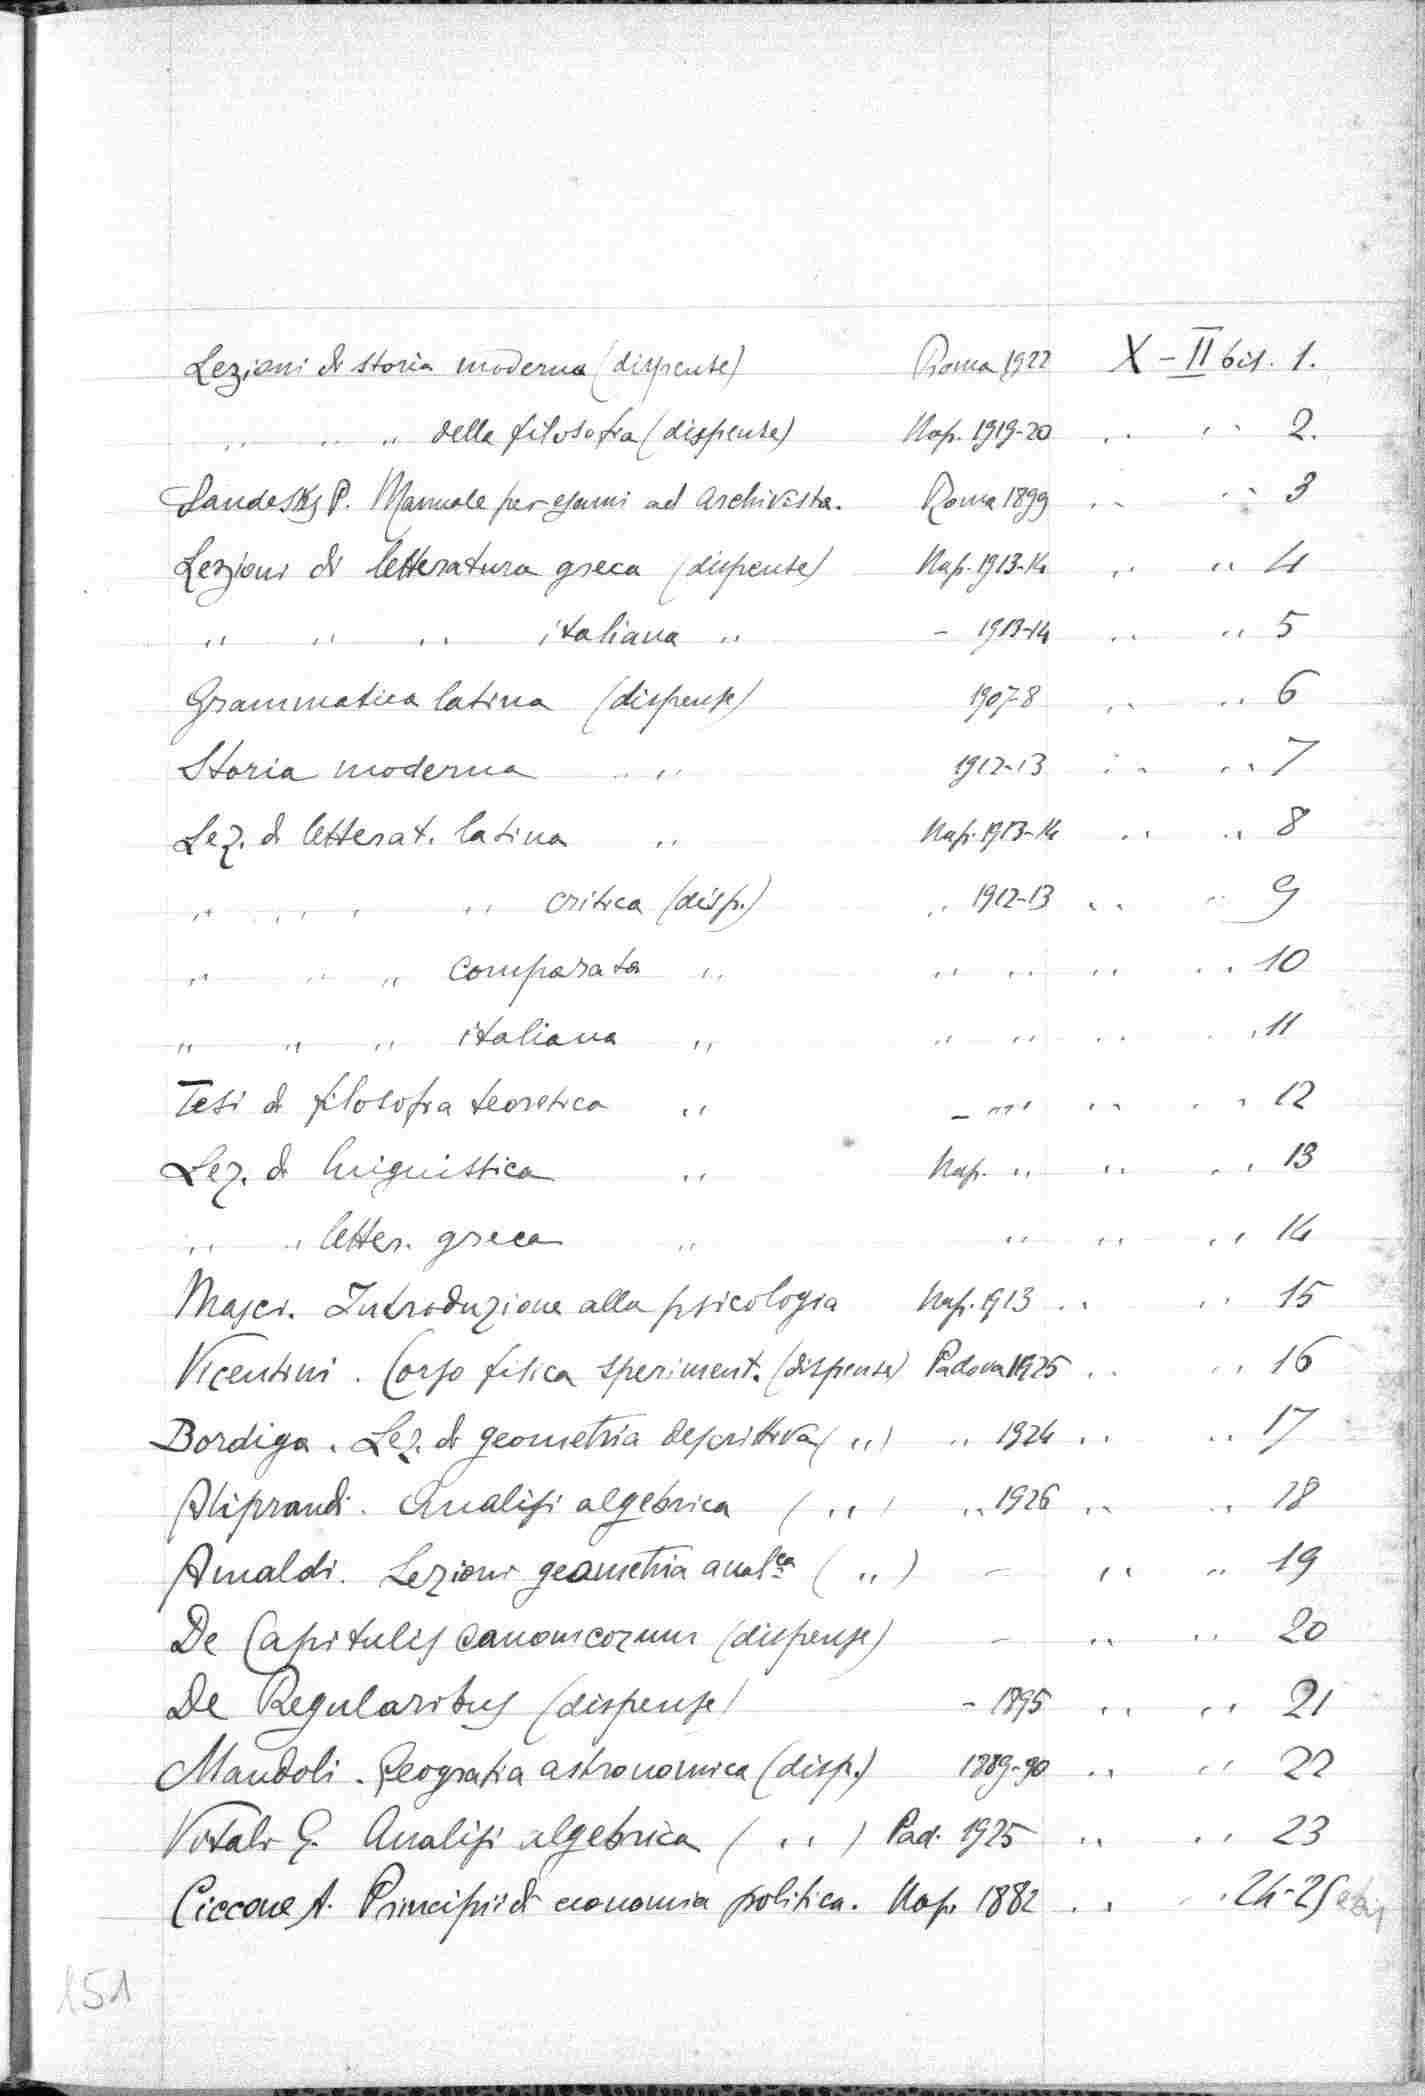 Lezioni di storia moderna (dispense) Roma 1922 X - II bis. 1.
" " " della filosofia (dispense) Nap. 1919-20 " " 2.
P. Manuale per esami ad archivista. Roma 1899 " " 3
Lezioni di letteratura greca (dispense) Nap. 1913-14 " " 4
" " " italiana " - 1913-14 " " 5
Grammatica latina (dispense) 1907-8 " " 6
Storia moderna " 1912-13 " " 7
Lez. di letterat. latina " Nap. 1913-14 " " 8
" " " " critica (disp.) " 1912-13 " " 9
" " " comparata " " " " " 10
" " " italiana " " " " " 11
Tesi di filosofia teoretica " - " " " 12
Lez. di linguistica " Nap. " " " 13
" " letter. greca " " " " 14
Masci. Introduzione alla psicologia Nap. 1913 " " 15
Vicentini. Corso fisica speriment. (dispense) Padova 1925 " " 16
Bordiga. Lez. di geometria descrittiva ( " ) " 1924 " " 17
Aliprandi. Analisi algebrica ( " ) " 1926 " " 18
Amaldi. Lezioni geometria anal.ca ( " ) - " " 19
De Capitulis canonicorum (dispense) - " " 20
De Regularibus (dispense) - 1895 " " 21
Mandoli. Geografia astronomica (disp.) 1889-90 " " 22
Vitali G. Analisi algebrica ( " ) Pad. 1925 " " 23
Ciccone A. Principii di economia politica. Nap. 1882 " " 24-25
151